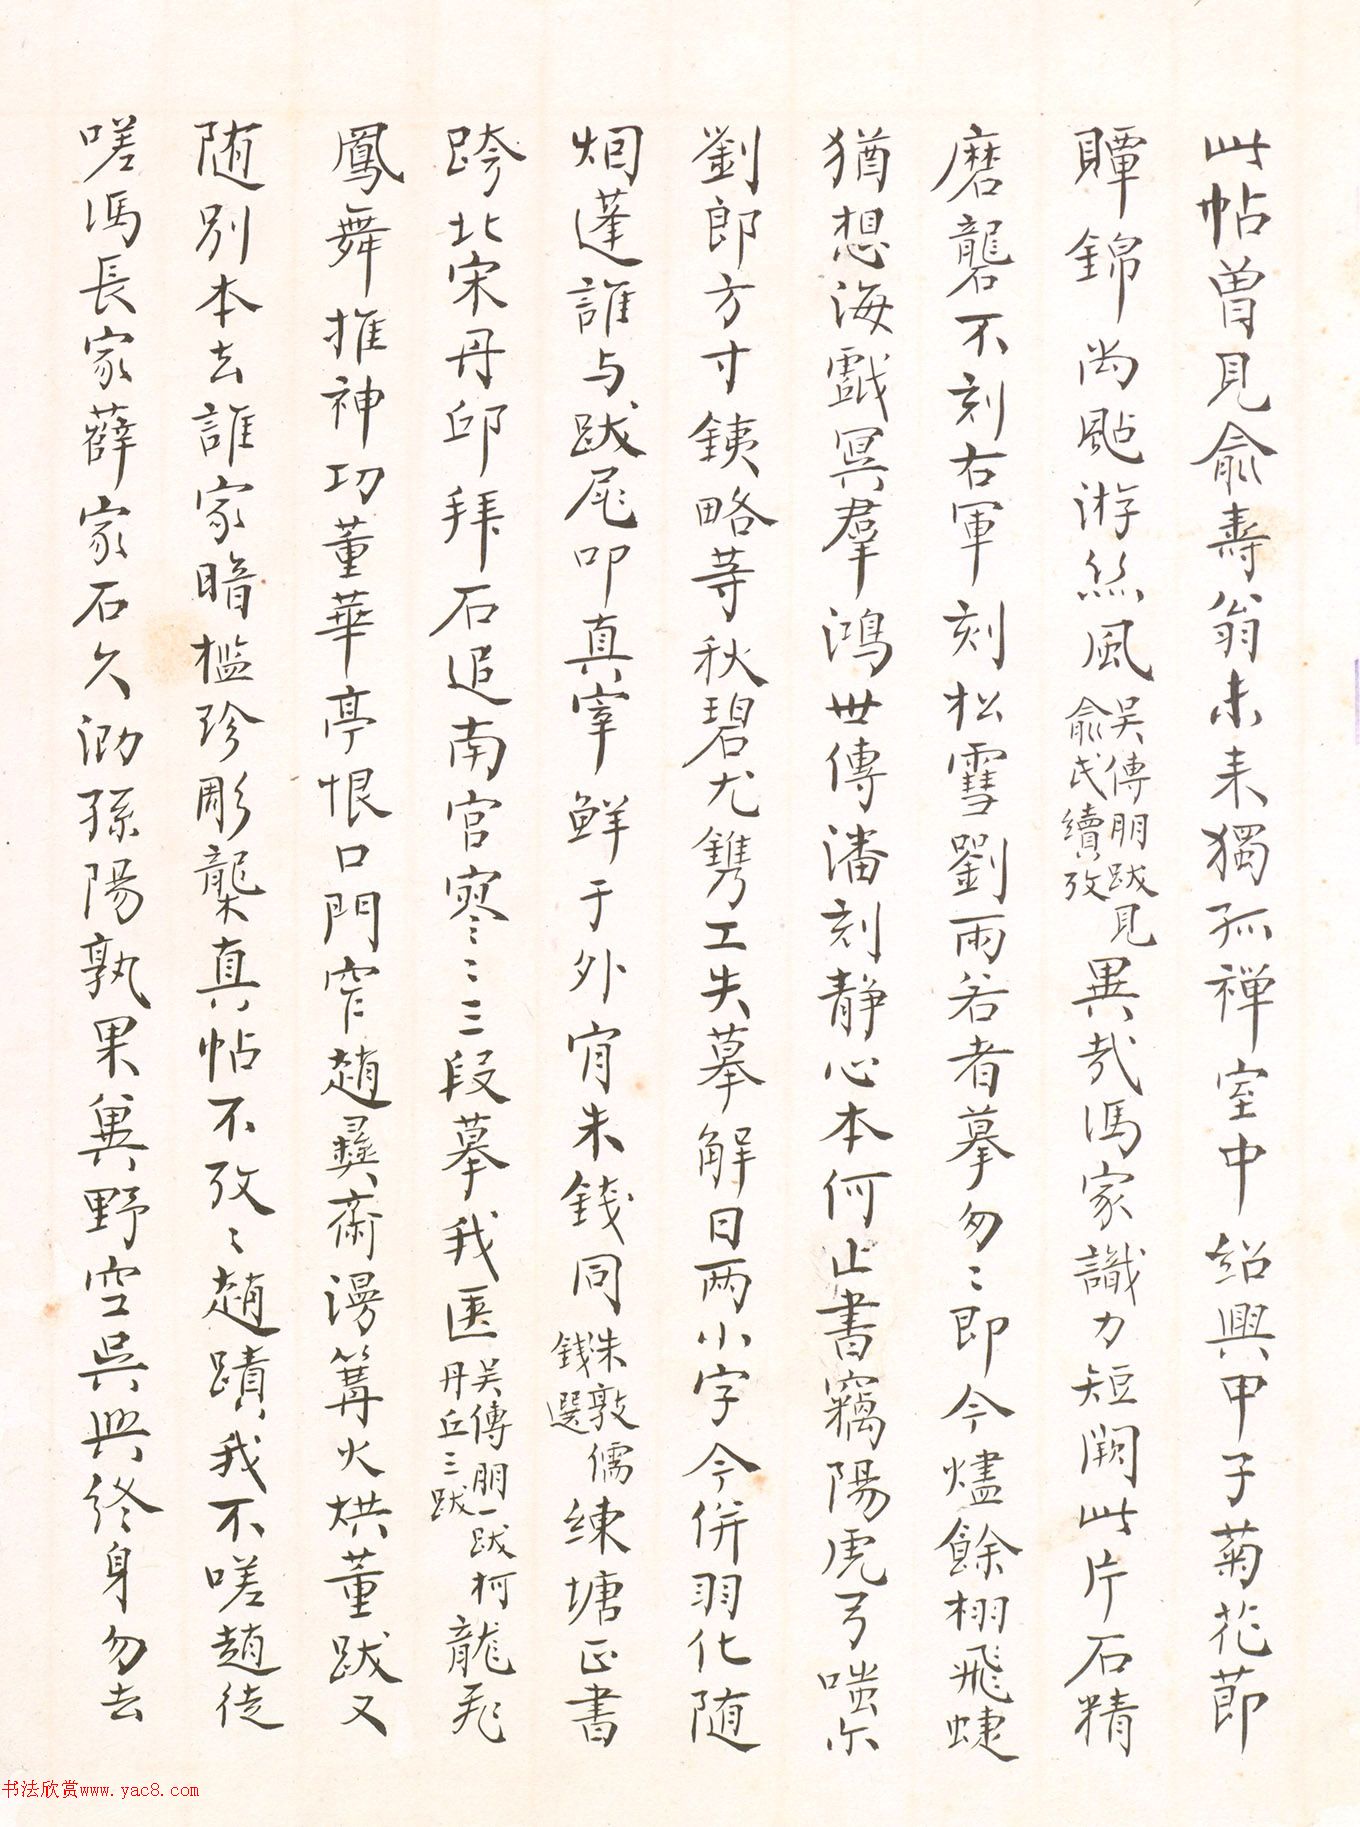 此帖曾見俞壽翁未來獨孤禪室中紹興甲子菊花節
贉錦尚颭游絲風吳傳朋跋見俞氏續攷異哉馮家識力短闕此片石精
磨礲不刻右軍刻松雪劉雨若者摹勿〻即今燼餘栩飛蜨
猶想海戲冥羣鴻世傳潘刻靜心本何止書竊陽虎弓嗤尓
劉郎方寸銕略等秋碧尤鐫工失摹解日两小字今併羽化随
烟蓬誰与跋尾叩真宰鮮于外有朱錢同朱敦儒錢選練塘正書
跨北宋丹邱拜石追南宮寥〻三段摹我匧吳傳朋一跋柯丹丘三跋龍飛
鳳舞推神功董華亭恨口門窄趙彝齋漫篝火烘董跋又
随别本去誰家暗槛珍彫龔真帖不攷〻趙蹟我不嗟趙徒
嗟馮長家薛家石久泐孫陽孰果冀野空吳興終身勿去
书法欣赏www.yac8.com